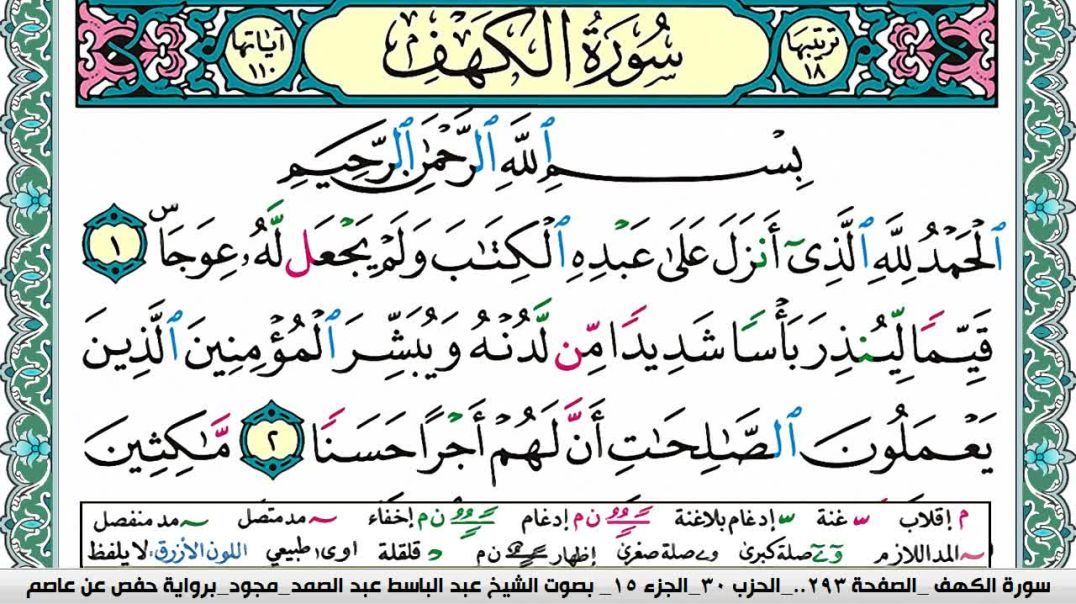 ترتيبها ١٨ سُورَةُ الكَهْفِ آياتها ١١٠
بِسْمِ ٱللَّهِ ٱلرَّحْمَٰنِ ٱلرَّحِيمِ
ٱلْحَمْدُ لِلَّهِ ٱلَّذِىٓ أَنزَلَ عَلَىٰ عَبْدِهِ ٱلْكِتَٰبَ وَلَمْ يَجْعَل لَّهُۥ عِوَجَاۜ ١
قَيِّمًا لِّيُنذِرَ بَأْسًا شَدِيدًا مِّن لَّدُنْهُ وَيُبَشِّرَ ٱلْمُؤْمِنِينَ ٱلَّذِينَ
يَعْمَلُونَ ٱلصَّٰلِحَٰتِ أَنَّ لَهُمْ أَجْرًا حَسَنًا ٢ مَّٰكِثِينَ
م إقلاب غنة إدغام بلاغنة ن م إدغام ن م إخفاء مد متصل مد منفصل
المد اللازم صلة كبرى صلة صغرى إظهار ن م قلقلة طبيعي اللون الأزرق: لا يلفظ
سورة الكهف _الصفحة ٢٩٣.._الحزب ٣٠_الجزء ١٥_ بصوت الشيخ عبد الباسط عبد الصمد_مجود_برواية حفص عن عاصم